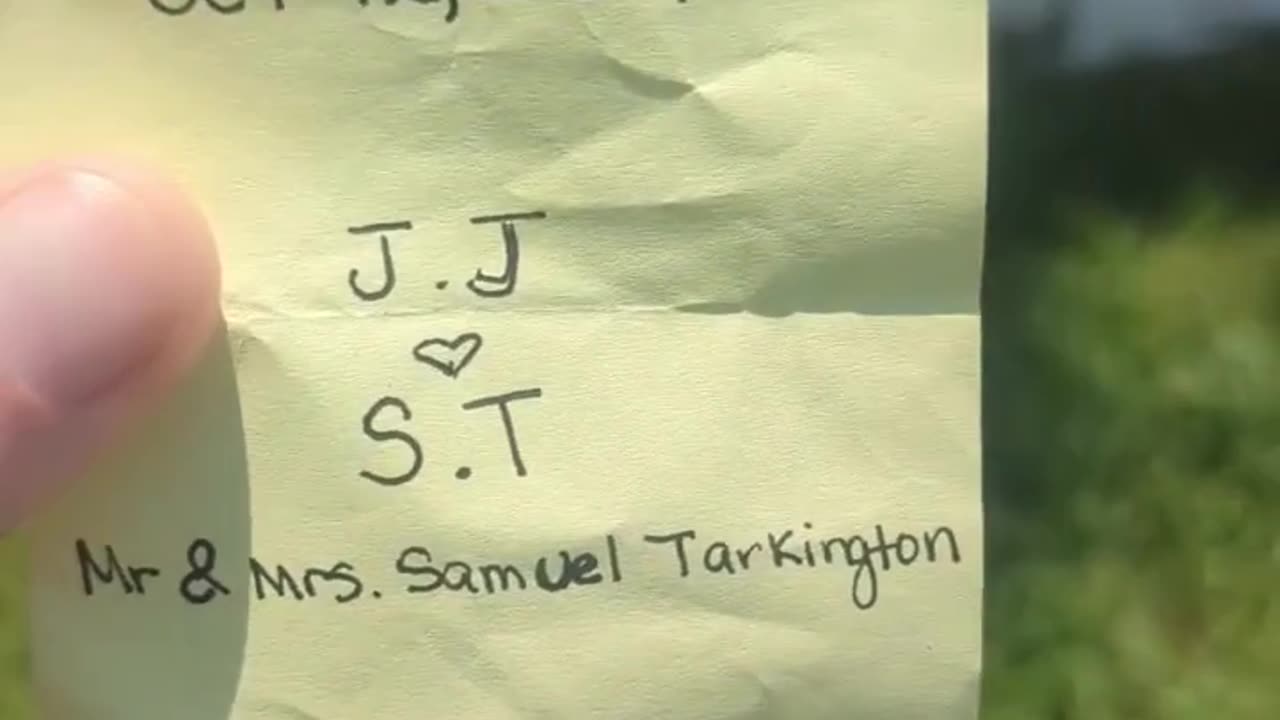 J.J
♡
S.T
Mr & Mrs. Samuel Tarkington